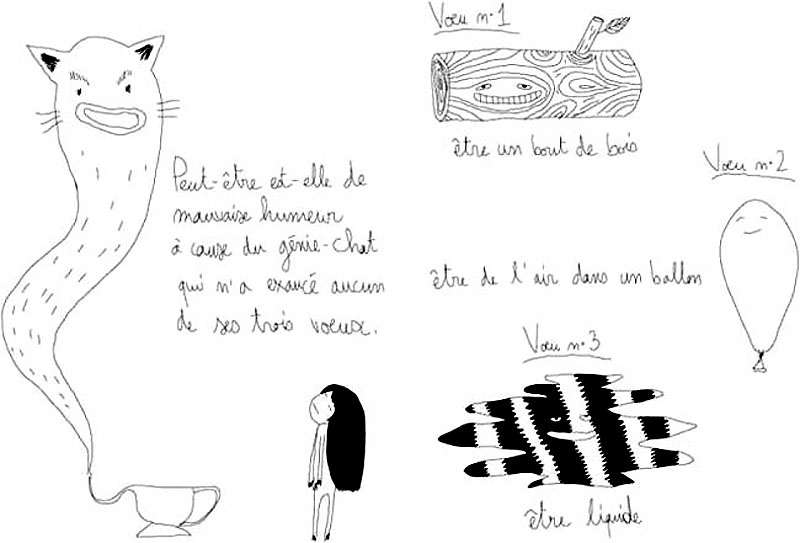 Peut-être est-elle de
mauvaise humeur
à cause du génie-chat
qui n'a exaucé aucun
de ses trois voeux.
Voeu n°1
être un bout de bois
Voeu n°2
être de l'air dans un ballon
Voeu n°3
être liquide